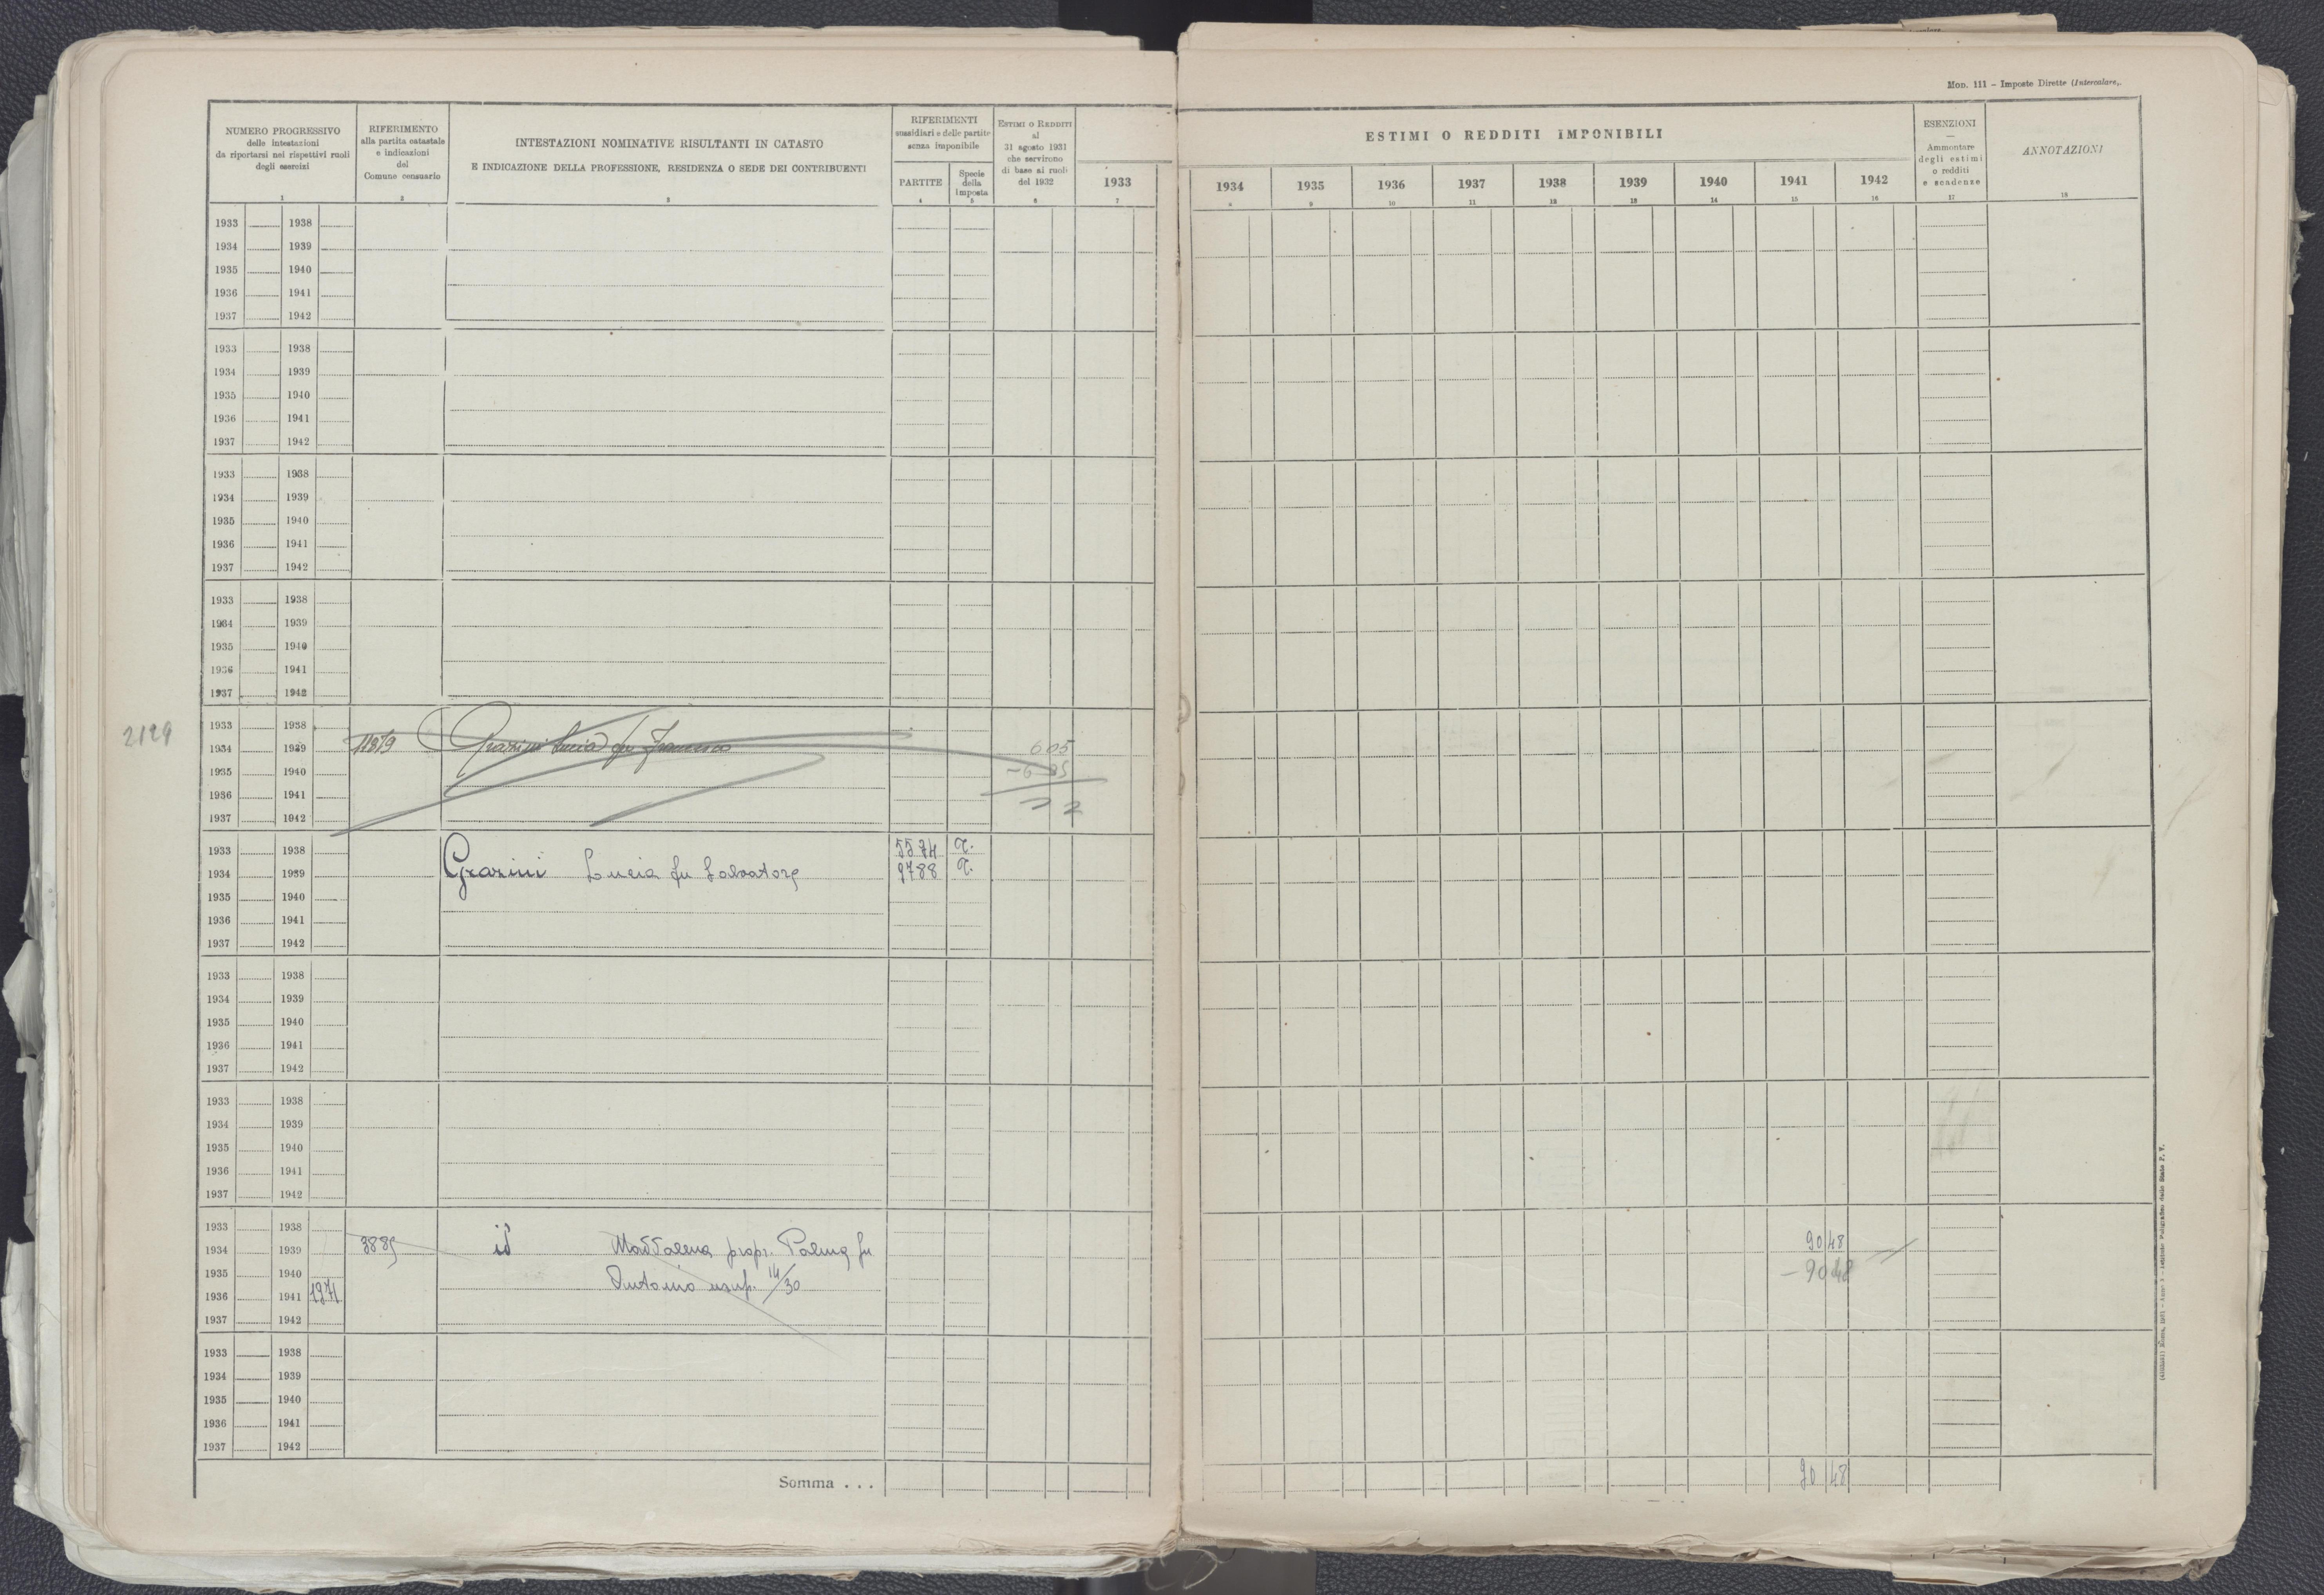 Mod. 111 - Imposte Dirette (Intercalare).
NUMERO PROGRESSIVO
delle intestazioni
da riportarsi nei rispettivi ruoli
degli esercizi
1
RIFERIMENTO
alla partita catastale
e indicazioni
del
Comune censuario
2
INTESTAZIONI NOMINATIVE RISULTANTI IN CATASTO
E INDICAZIONE DELLA PROFESSIONE, RESIDENZA O SEDE DEI CONTRIBUENTI
3
RIFERIMENTI
sussidiari e delle partite
senza imponibile
PARTITE
4
Specie
della
imposta
5
ESTIMI O REDDITI
al
31 agosto 1931
che servirono
di base ai ruoli
del 1932
6
ESTIMI O REDDITI IMPONIBILI
1933 1934 1935 1936 1937 1938 1939 1940 1941 1942
7 8 9 10 11 12 13 14 15 16
ESENZIONI
—
Ammontare
degli estimi
o redditi
e scadenze
17
ANNOTAZIONI
18
1933 1938
1934 1939
1935 1940
1936 1941
1937 1942
1933 1938
1934 1939
1935 1940
1936 1941
1937 1942
1933 1938
1934 1939
1935 1940
1936 1941
1937 1942
1933 1938
1934 1939
1935 1940
1936 1941
1937 1942
1933 1938
2129 1934 1939 11879 Grazini Lucia fu Francesco 605
1935 1940 - 605
1936 1941
1937 1942
1933 1938 5574 T.
1934 1939 Grazini Lucia fu Salvatore 9788 T.
1935 1940
1936 1941
1937 1942
1933 1938
1934 1939
1935 1940
1936 1941
1937 1942
1933 1938
1934 1939
1935 1940
1936 1941
1937 1942
1933 1938
1934 1939 3885 id Maddalena propr. Palma fu 90 48
1935 1940 Antonio usuf. 14/30 - 90 48
1936 1941 1971
1937 1942
1933 1938
1934 1939
1935 1940
1936 1941
1937 1942
Somma . . . 90 48